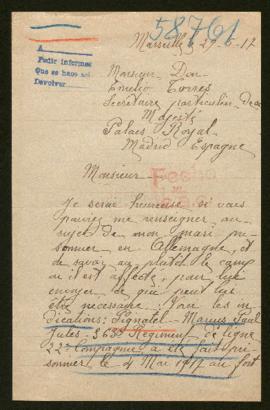 58761
Marseille 29-6-17
A
Pedir informes
Que se hace
Devolver
Monsieur Don
Emilio Torres
Secrétaire particulier de
Majesté
Palais Royal
Madrid Espagne
Monsieur
Je serai heureuse si vous
pouviez me renseigner au
sujet de mon mari pri-
sonnier en Allemagne, et
de savoir au plutôt le camp
où il est affecté, pour lui
envoyer ce qui peut lui
être nécessaire. Voici les in-
dications: Pignatel Marius Paul
Jules. 363e Régiment de ligne
22e Compagnie a été fait pri-
sonnier le 4 Mai 1917 au fort